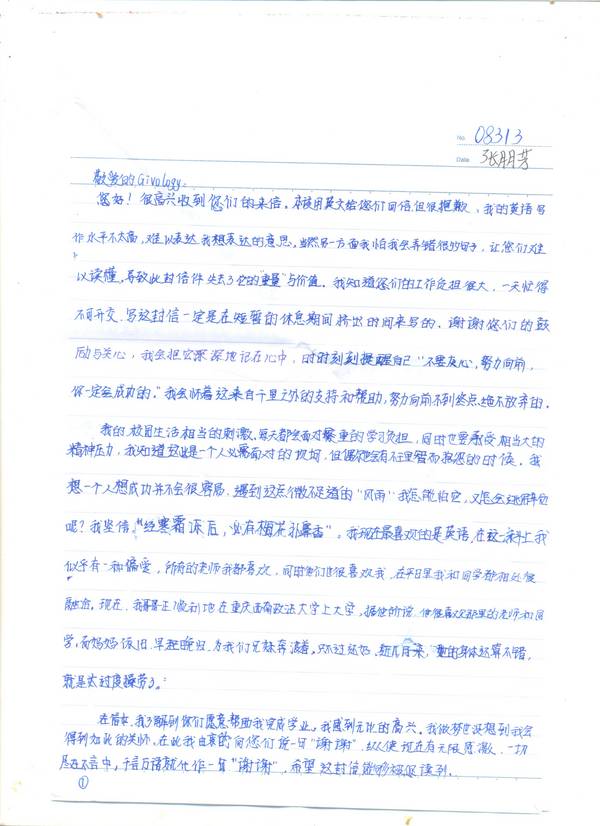 No. 08313
Date. 张朋芳
敬爱的Givology:
您好！很高兴收到您们的来信。本该用英文给您们回信，但很抱歉，我的英语写
作水平不太高，难以表达我想表达的意思，当然另一方面我怕我会弄错很多句子，让您们难
以读懂，导致此封信件失去了它的重量与价值。我知道您们的工作负担很大，一天忙得
不可开交，写这封信一定是在短暂的休息期间挤出时间来写的。谢谢您们的鼓
励与关心，我会把它深深地记在心中，时时刻刻提醒自己"不要灰心，努力向前，
你一定会成功的。"我会怀着这来自千里之外的支持和帮助，努力向前不到终点绝不放弃的。
我的校园生活相当的刺激，每天都会面对繁重的学习负担，同时也要承受相当大的
精神压力，我知道这些是一个人必需面对的坎坷，但偶尔也会有不理智而抱怨的时候。我
想一个人想成功并不会很容易，遇到这点微不足道的"风雨"我怎能怕它，又怎会
呢？我坚信"经寒霜冻后，必有梅花扑鼻香"。我现在最喜欢的是英语，在这一科上我
似乎有一种偏爱，所有的老师我都喜欢，同时他们也很喜欢我，在平日里我和同学都相处很
融洽。现在，我哥哥正顺利地在重庆西南政法大学上大学，据他所说，他很喜欢那里的老师和同
学，而妈妈依旧早起晚归，为我们兄妹奔波着。只不过还好，近几日来，她的身体还算不错，
就是太过度操劳了。
在信中，我了解到你们愿意帮助我完成学业，我感到无比的高兴。我做梦也没想到我会
得到如此的关怀，在此我由衷的向您们说一声"谢谢"，纵使现在有无限感激，一切
尽在不言中，千言万语就化作一声"谢谢"，希望这封信能够被你读到。
①